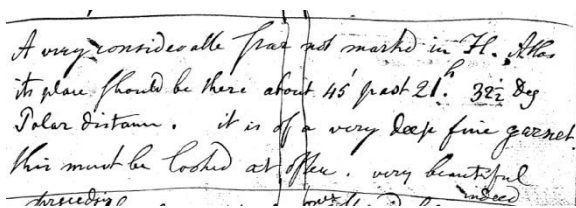 A very considerable star not marked in Fl. Atlas
its place should be there about 45' past 21.h 32½ Deg
Polar distance. it is of a very deep fine garnet.
this must be looked at often. very beautiful
indeed
preceding